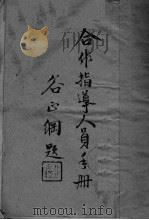 合作指導人員手冊
谷正綱題